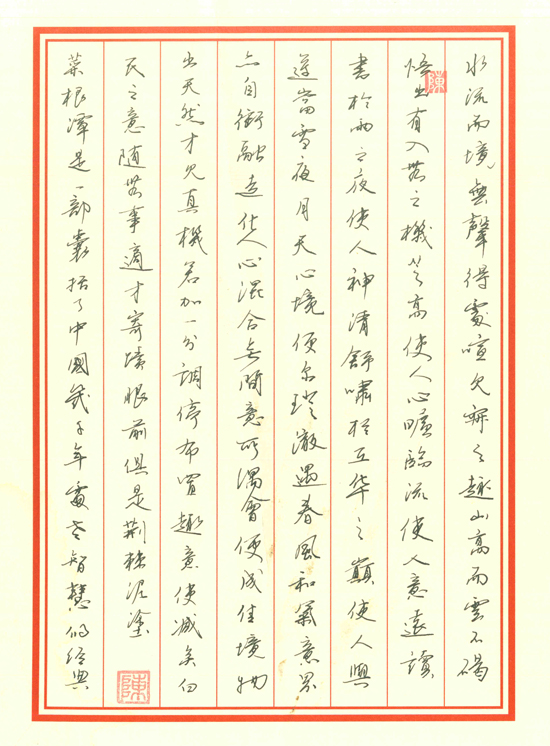 水流而境無聲得處喧見寂之趣山高而雲不碍
悟出有入無之機登高使人心曠臨流使人意遠讀
書於雨之夜使人神清舒嘯於丘阜之巔使人興
邁當雪夜月天心境便尔澄澈遇春風和氣意界
亦自衝融造化人心混合無間意所偶會便成佳境物
出天然才見真機若加一分調停布置趣意便減矣白
氏之意隨無事適才寄境眼前俱是荆棘泥塗
菜根潭是一部囊括了中國幾千年處世智慧的經典
陳
陳